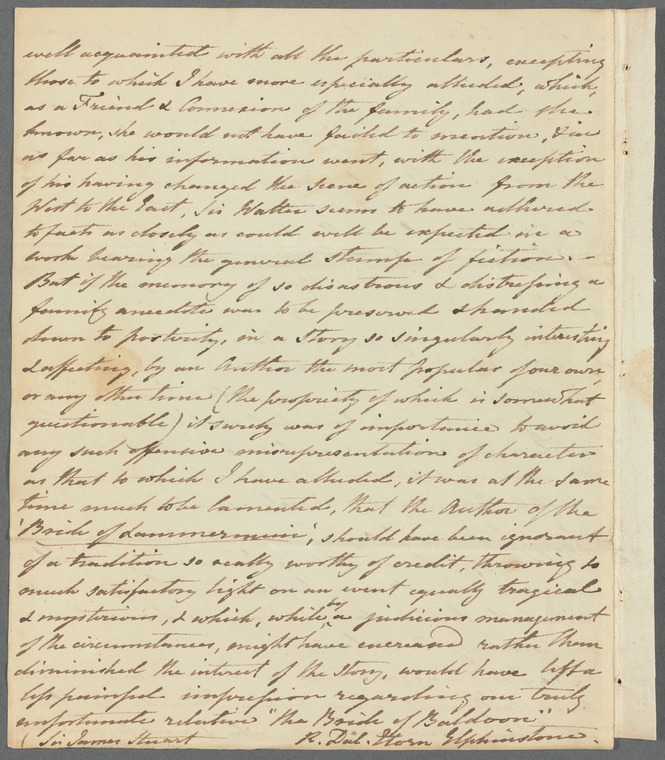 well acquainted with all the particulars, excepting
those to which I have more especially alluded; which,
as a Friend & Connexion of the family, had she
known, she would not have failed to mention, & in
as far as his information went, with the exception
of his having changed the Scene of action from the
West to the East, Sir Walter seems to have adhered
to facts as closely as could well be expected in a
work bearing the general Stamp of fiction. –
But if the memory of so disastrous & distressing a
family anecdote was to be preserved & handed
down to posterity, in a Story so singularly interesting
& affecting, by an Author the most popular of our own,
or any other time (the propriety of which is somewhat
questionable) it surely was of importance to avoid
any such offensive misrepresentation of character
as that to which I have alluded; it was at the same
time much to be lamented, that the Author of the
'Bride of Lammermuir', should have been ignorant
of a tradition so really worthy of credit, throwing so
much satisfactory light on an event equally tragical
& mysterious, & which, while by a judicious management
of the circumstances, might have encreased rather than
diminished the interest of the Story, would have left a
less painful impression regarding our truly
unfortunate relative "the Bride of Baldoon"
( Sir James Stuart R. Dal. Horn Elphinstone.